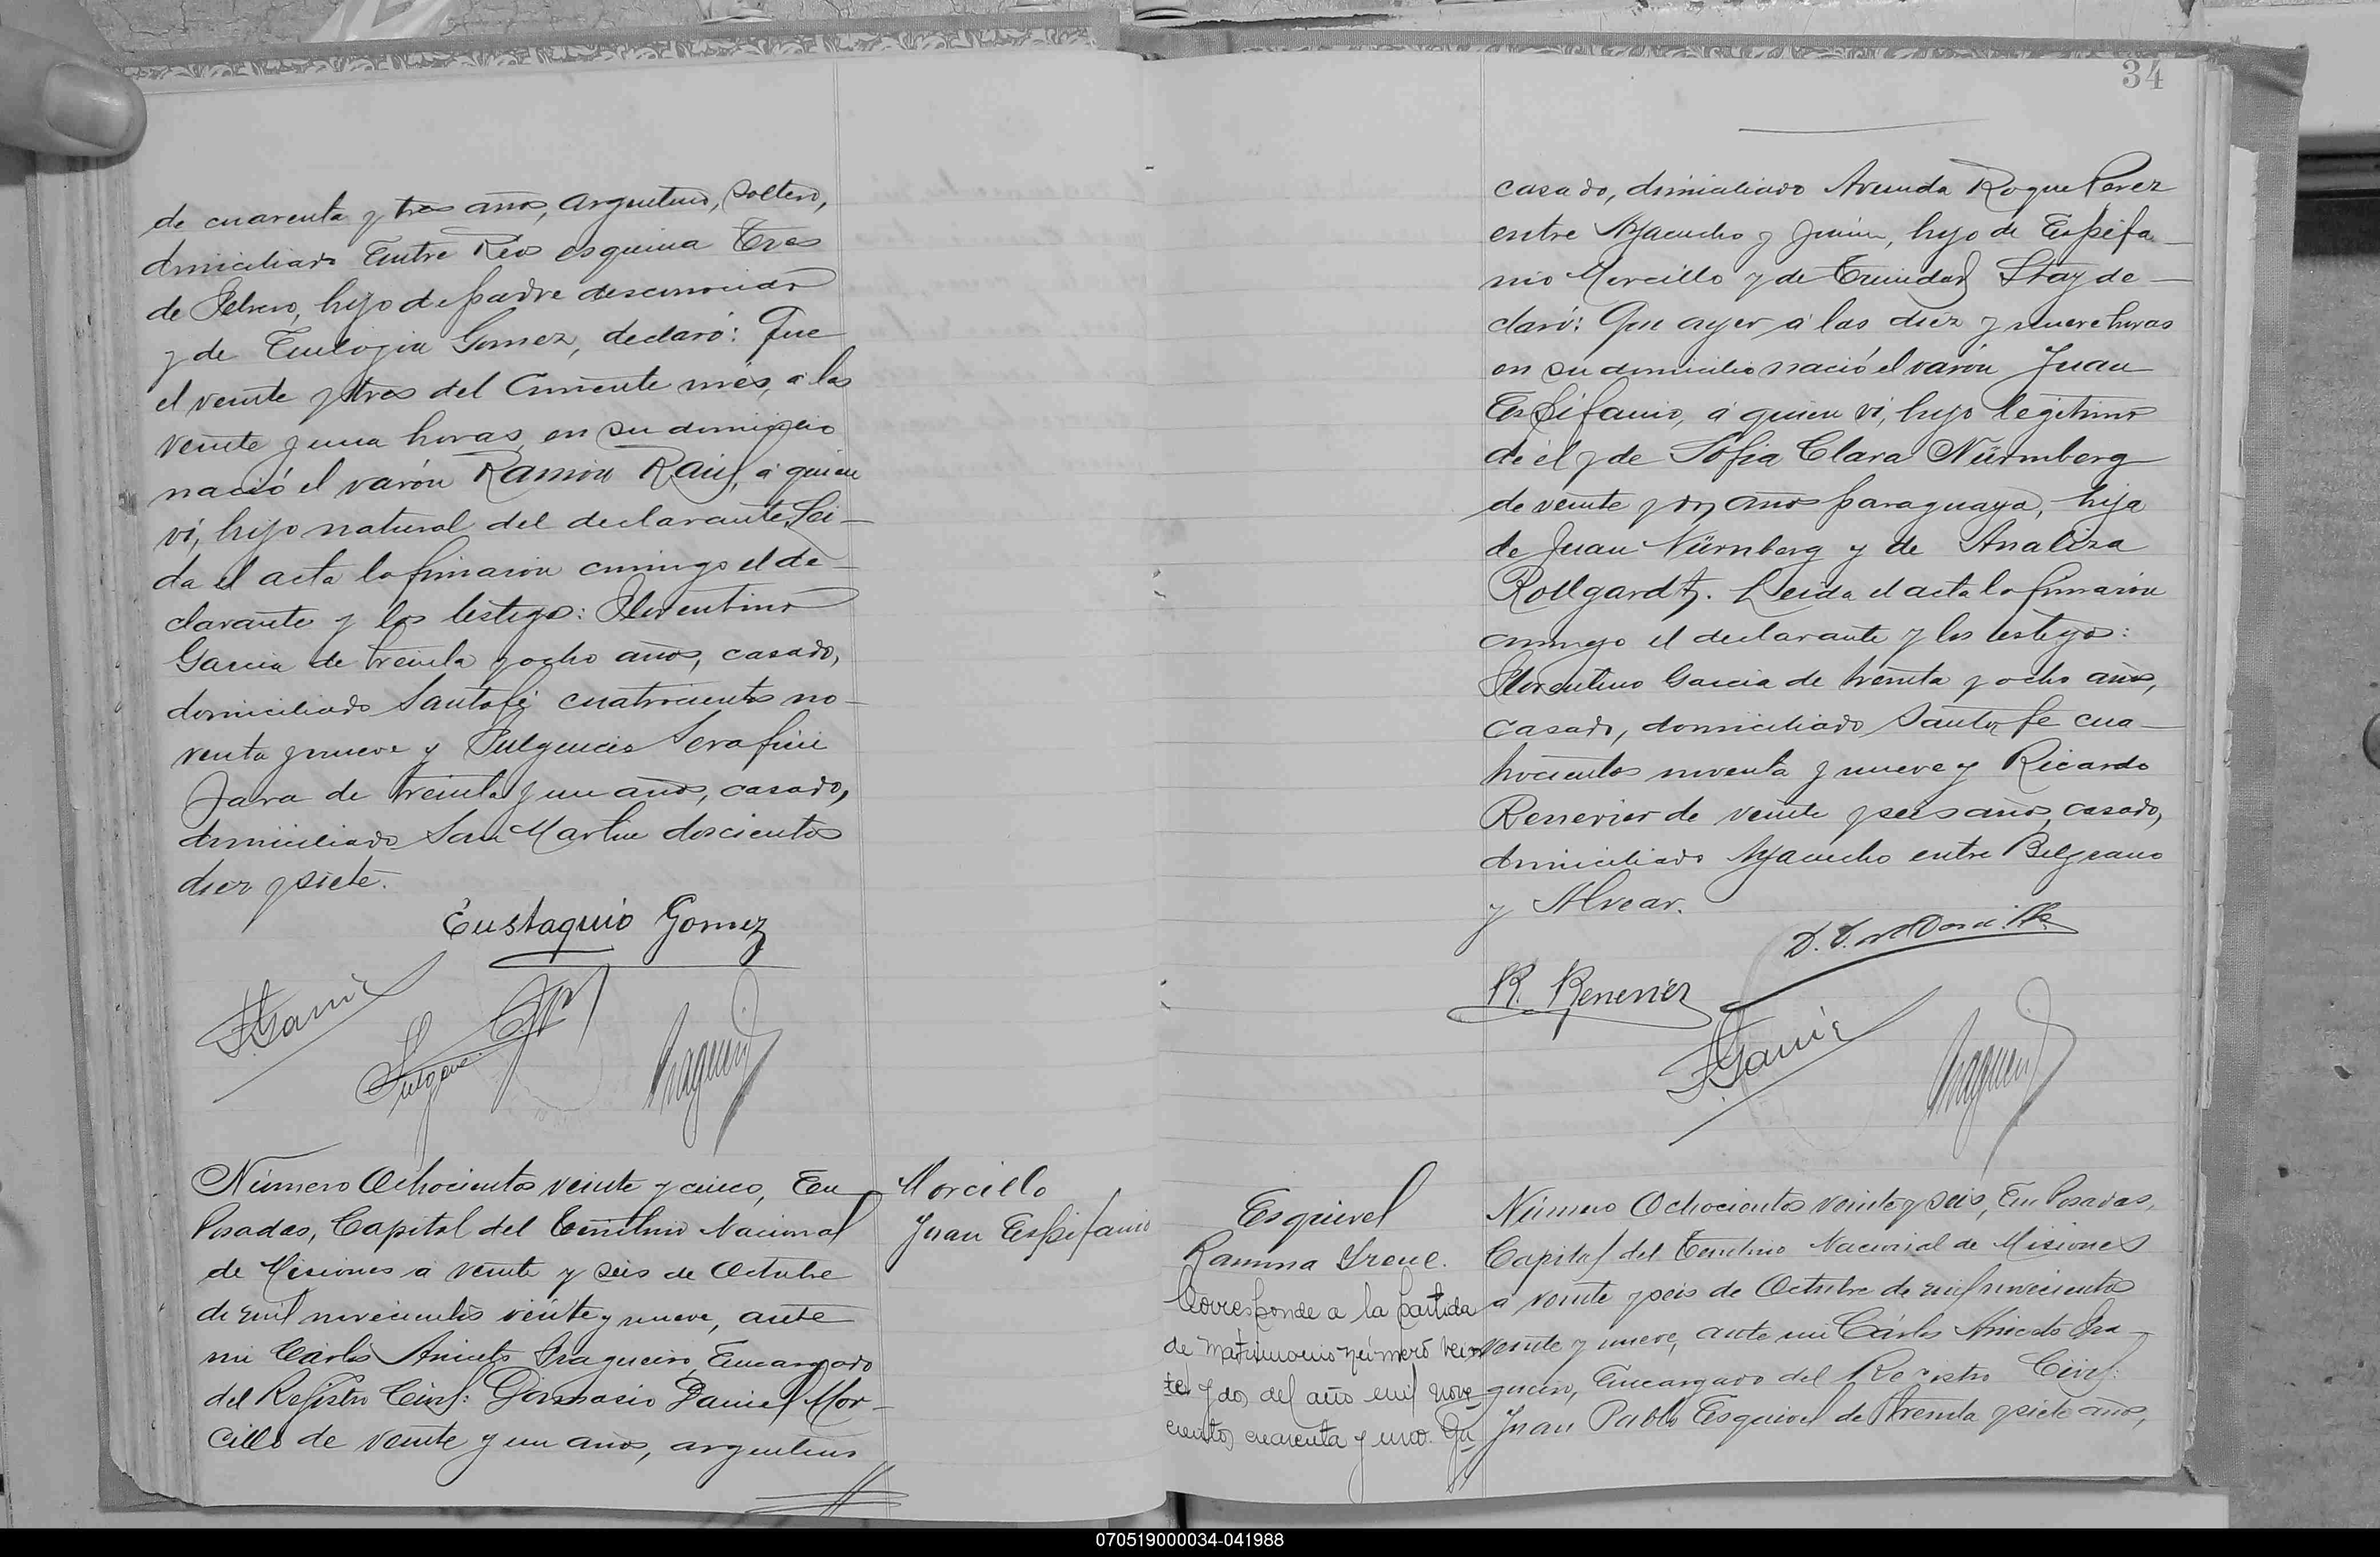 de cuarenta y tres años, argentino, soltero,
domiciliado Entre Rios esquina Tres
de Febrero, hijo de padre desconocido
y de Eulogia Gomez, declaró: Que
el veinte y tres del corriente més, a las
veinte y una horas, en su domicilio
nació el varón Ramón Raúl, a quien
ví, hijo natural del declarante. Lei-
da el acta la firmaron conmigo el de-
clarante y los testigos: Florentino
Garcia de treinta y ocho años, casado,
domiciliado Santafé cuatrocientos no-
venta y nueve y Fulgencio Serafin
Jara de treinta y un años, casado,
domiciliado San Martin doscientos
diez y siete.
Eustaquio Gomez
F. Garcia
Número Ochocientos veinte y cinco, En
Posadas, Capital del Territorio Nacional
de Misiones a veinte y seis de Octubre
de mil novecientos veinte y nueve, ante
mi Cárlos Aniceto Fragueiro, Encargado
del Registro Civil: Damasio Daniel Mor-
cillo de veinte y un años, argentino
Morcillo
Juan Espifanio
34
casado, domiciliado Avenida Roque Perez
entre Ayacucho y Junin, hijo de Espifa-
nio Morcillo y de Trinidad Stay de-
claró: Que ayer a las diez y nueve horas
en su domicilio nació el varón Juan
Espifanio, a quien ví, hijo legitimo
de él y de Sofia Clara Nürmberg
de veinte y años paraguaya, hija
de Juan Nürnberg y de Analiza
Rollgardt. Leida el acta la firmaron
conmigo el declarante y los testigos:
Florentino Garcia de treinta y ocho años,
casado, domiciliado Santa fe cua-
trocientos noventa y nueve y Ricardo
Renerier de veinte y seis años, casado,
domiciliado Ayacucho entre Belgrano
y Alvear.
R. Renerier
F. Garcia
Esquivel
Ramona Irene.
Corresponde a la partida
de matrimonio número vein
te y dos del año mil nove
cientos cuarenta y uno.
Número Ochocientos veinte y seis, En Posadas,
Capital del Territorio Nacional de Misiones
a veinte y seis de Octubre de mil novecientos
veinte y nueve, ante mi Cárlos Aniceto Fra-
gueiro, Encargado del Registro Civil:
Juan Pablo Esquivel de treinta y siete años,
070519000034-041988